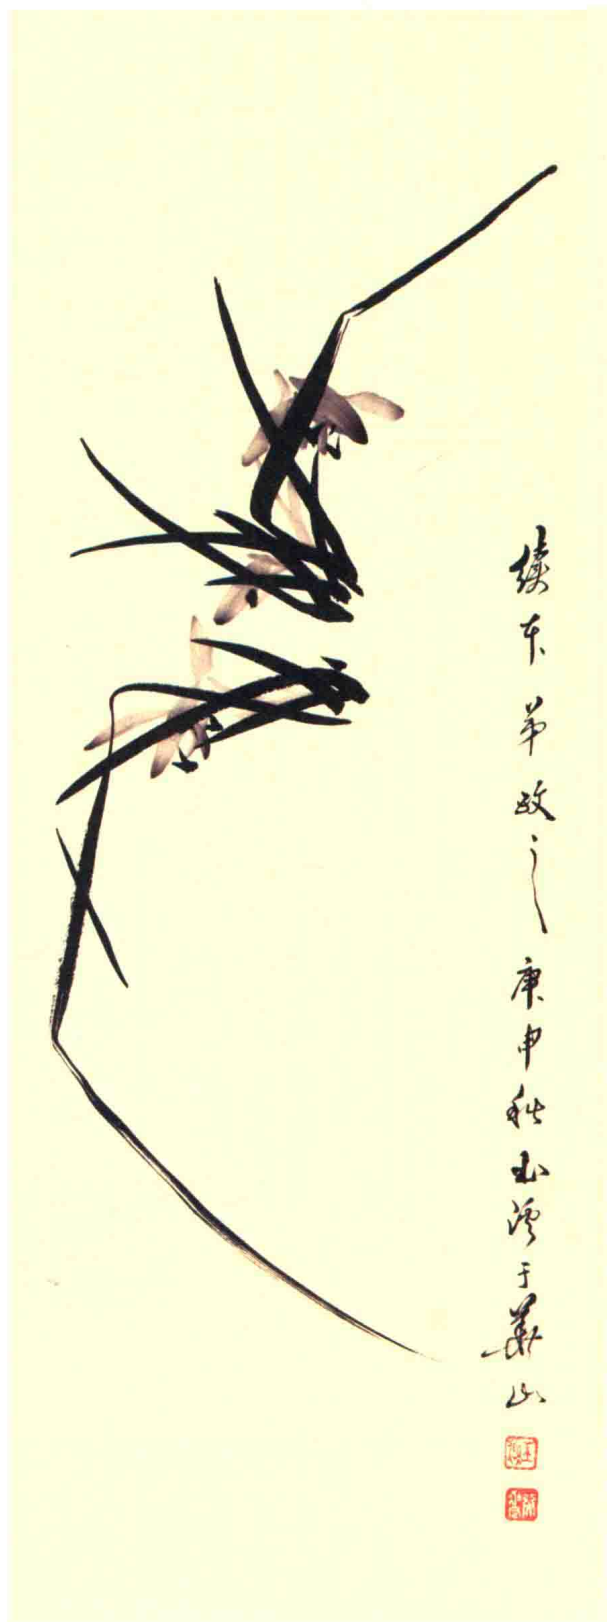 续东弟政之庚申秋玉溪于华山